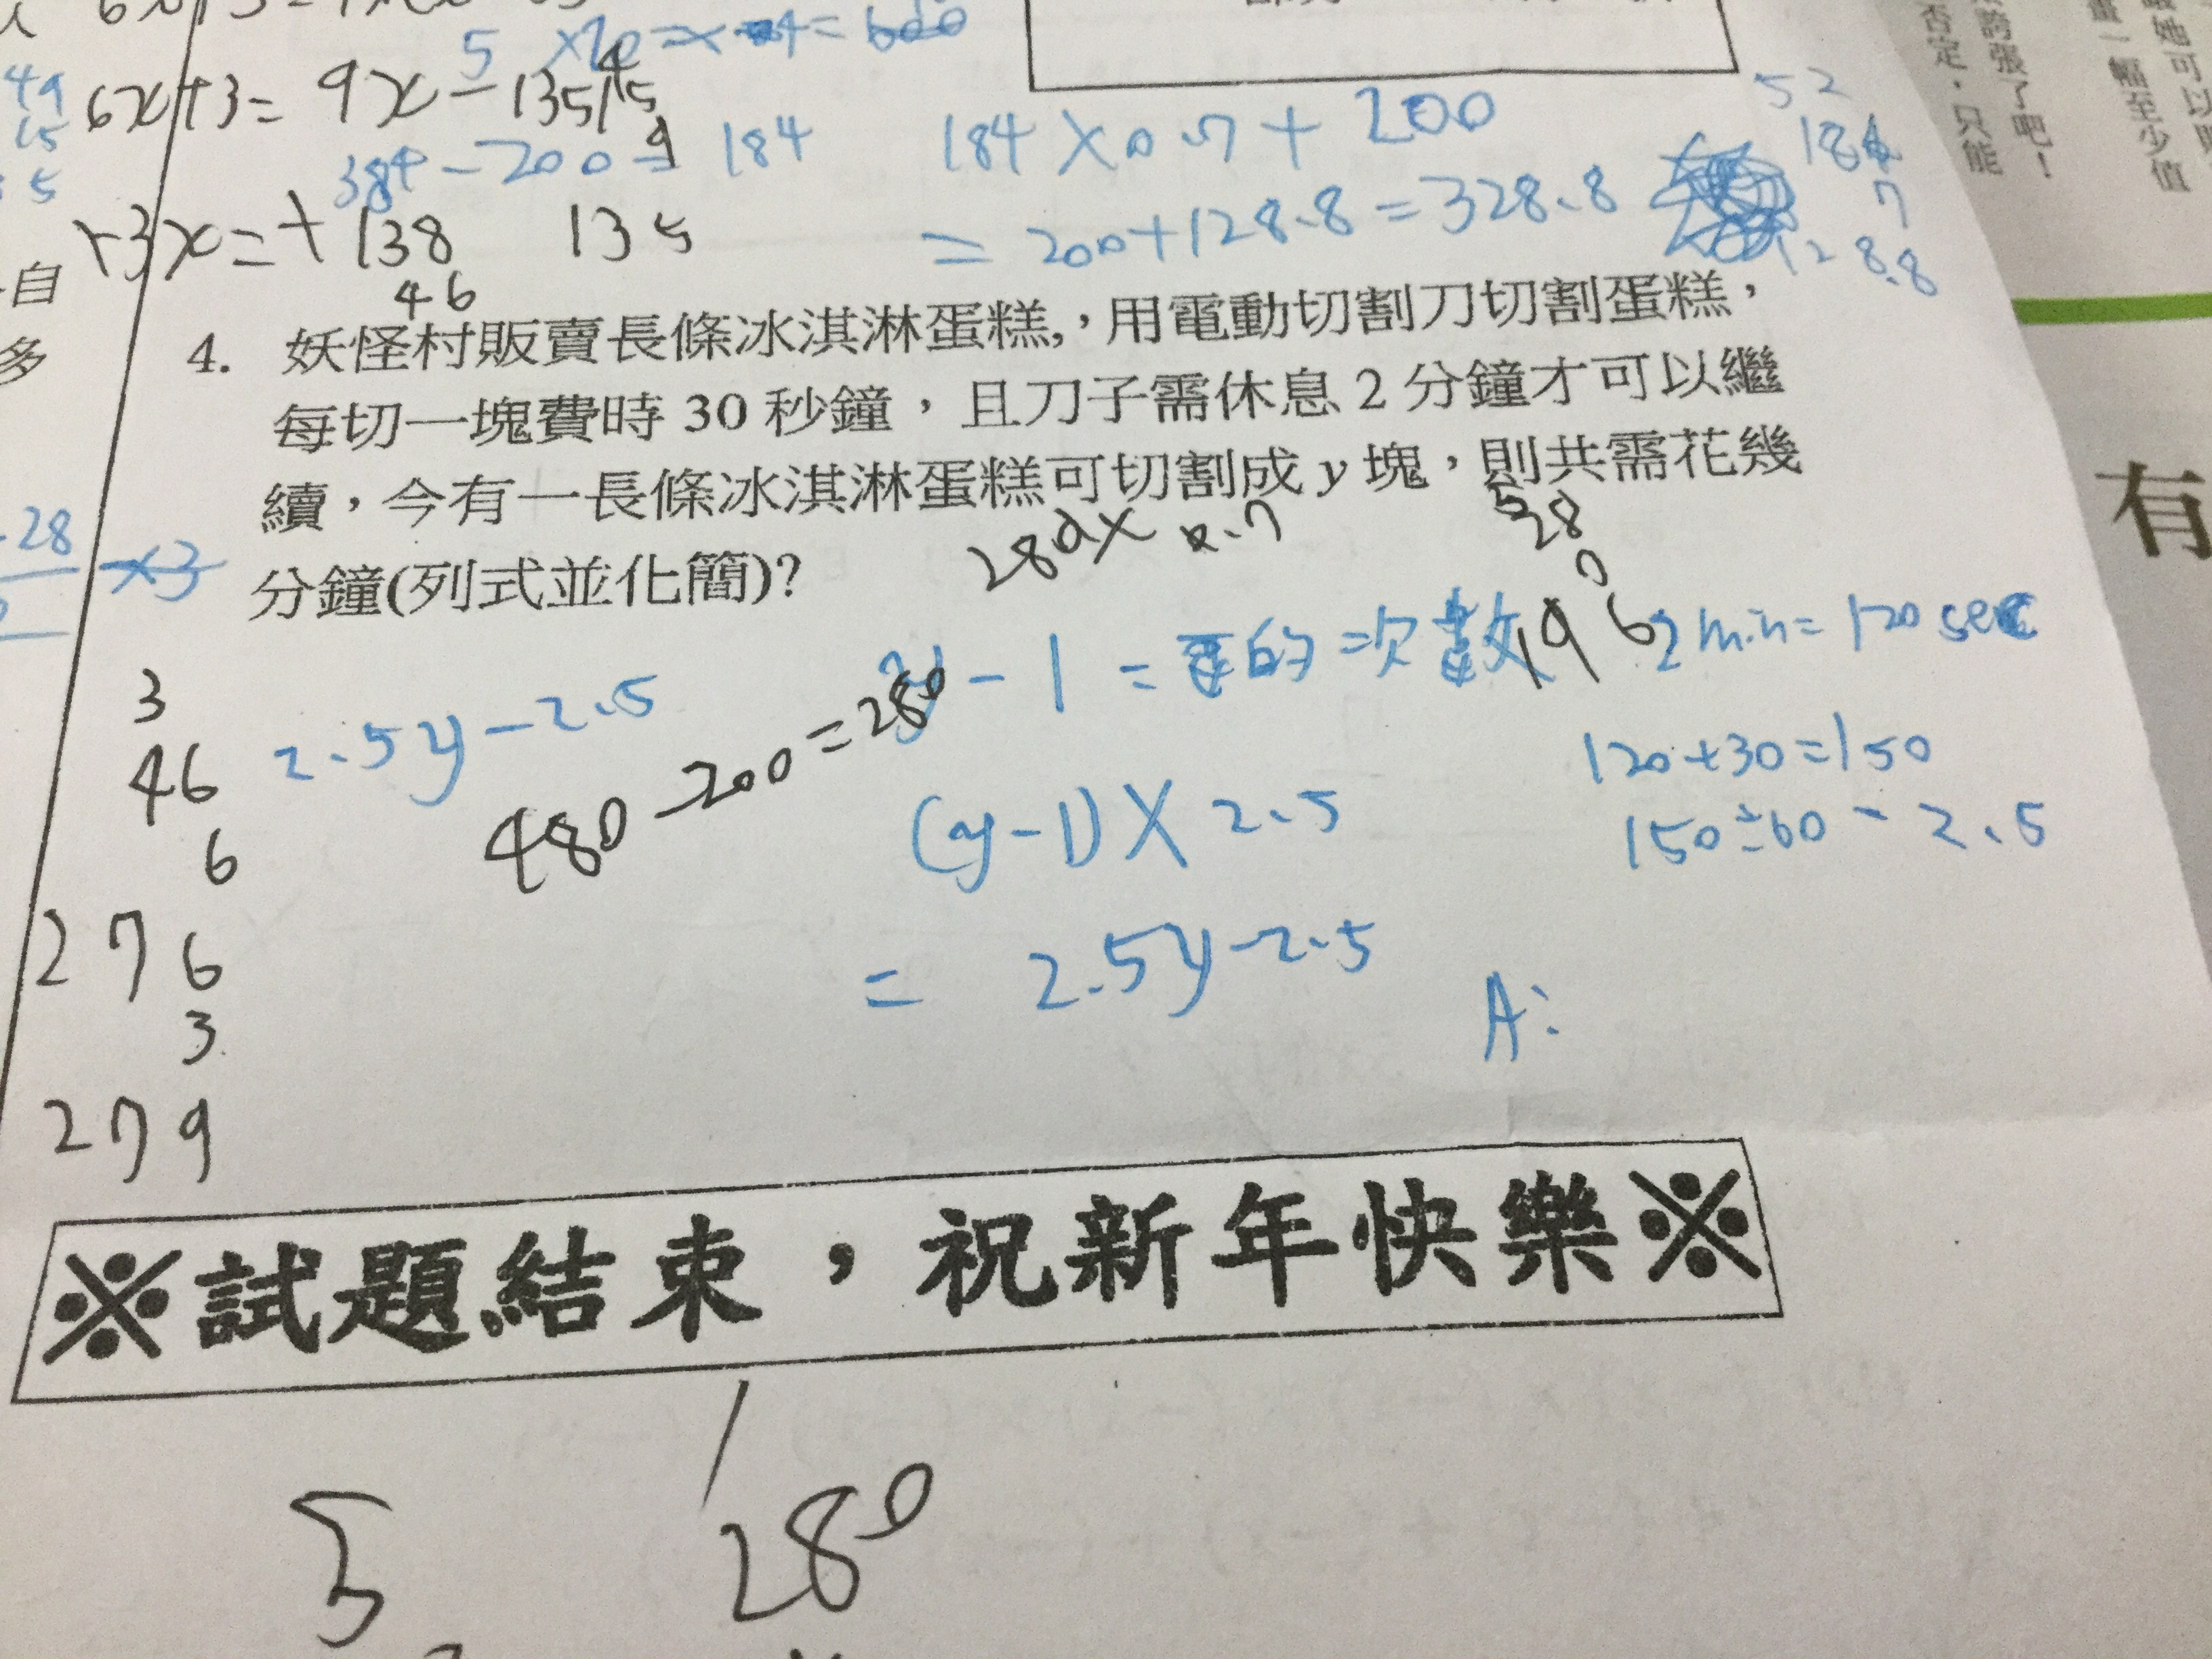 5 ×20 = × 4 =
49
15
5
6x+3= 9x - 135
384-200= 184
184×0.7+200
= 200+128.8=328.8
52
184
7
128.8
+3x=+138
135
46
自
多
4. 妖怪村販賣長條冰淇淋蛋糕,，用電動切割刀切割蛋糕，
每切一塊費時 30 秒鐘，且刀子需休息 2 分鐘才可以繼
續，今有一長條冰淇淋蛋糕可切割成 y 塊，則共需花幾
分鐘(列式並化簡)?
280×0.7
28
196
28
×3
y-1=的次數
2min=120sec
2.5y-2.5
480-200=280
120+30=150
150÷60=2.5
(y-1)×2.5
=2.5y-2.5
A:
3
46
6
276
3
279
※試題結束，祝新年快樂※
280
誇張了吧！
否定，只能
一幅至少值
可以
有